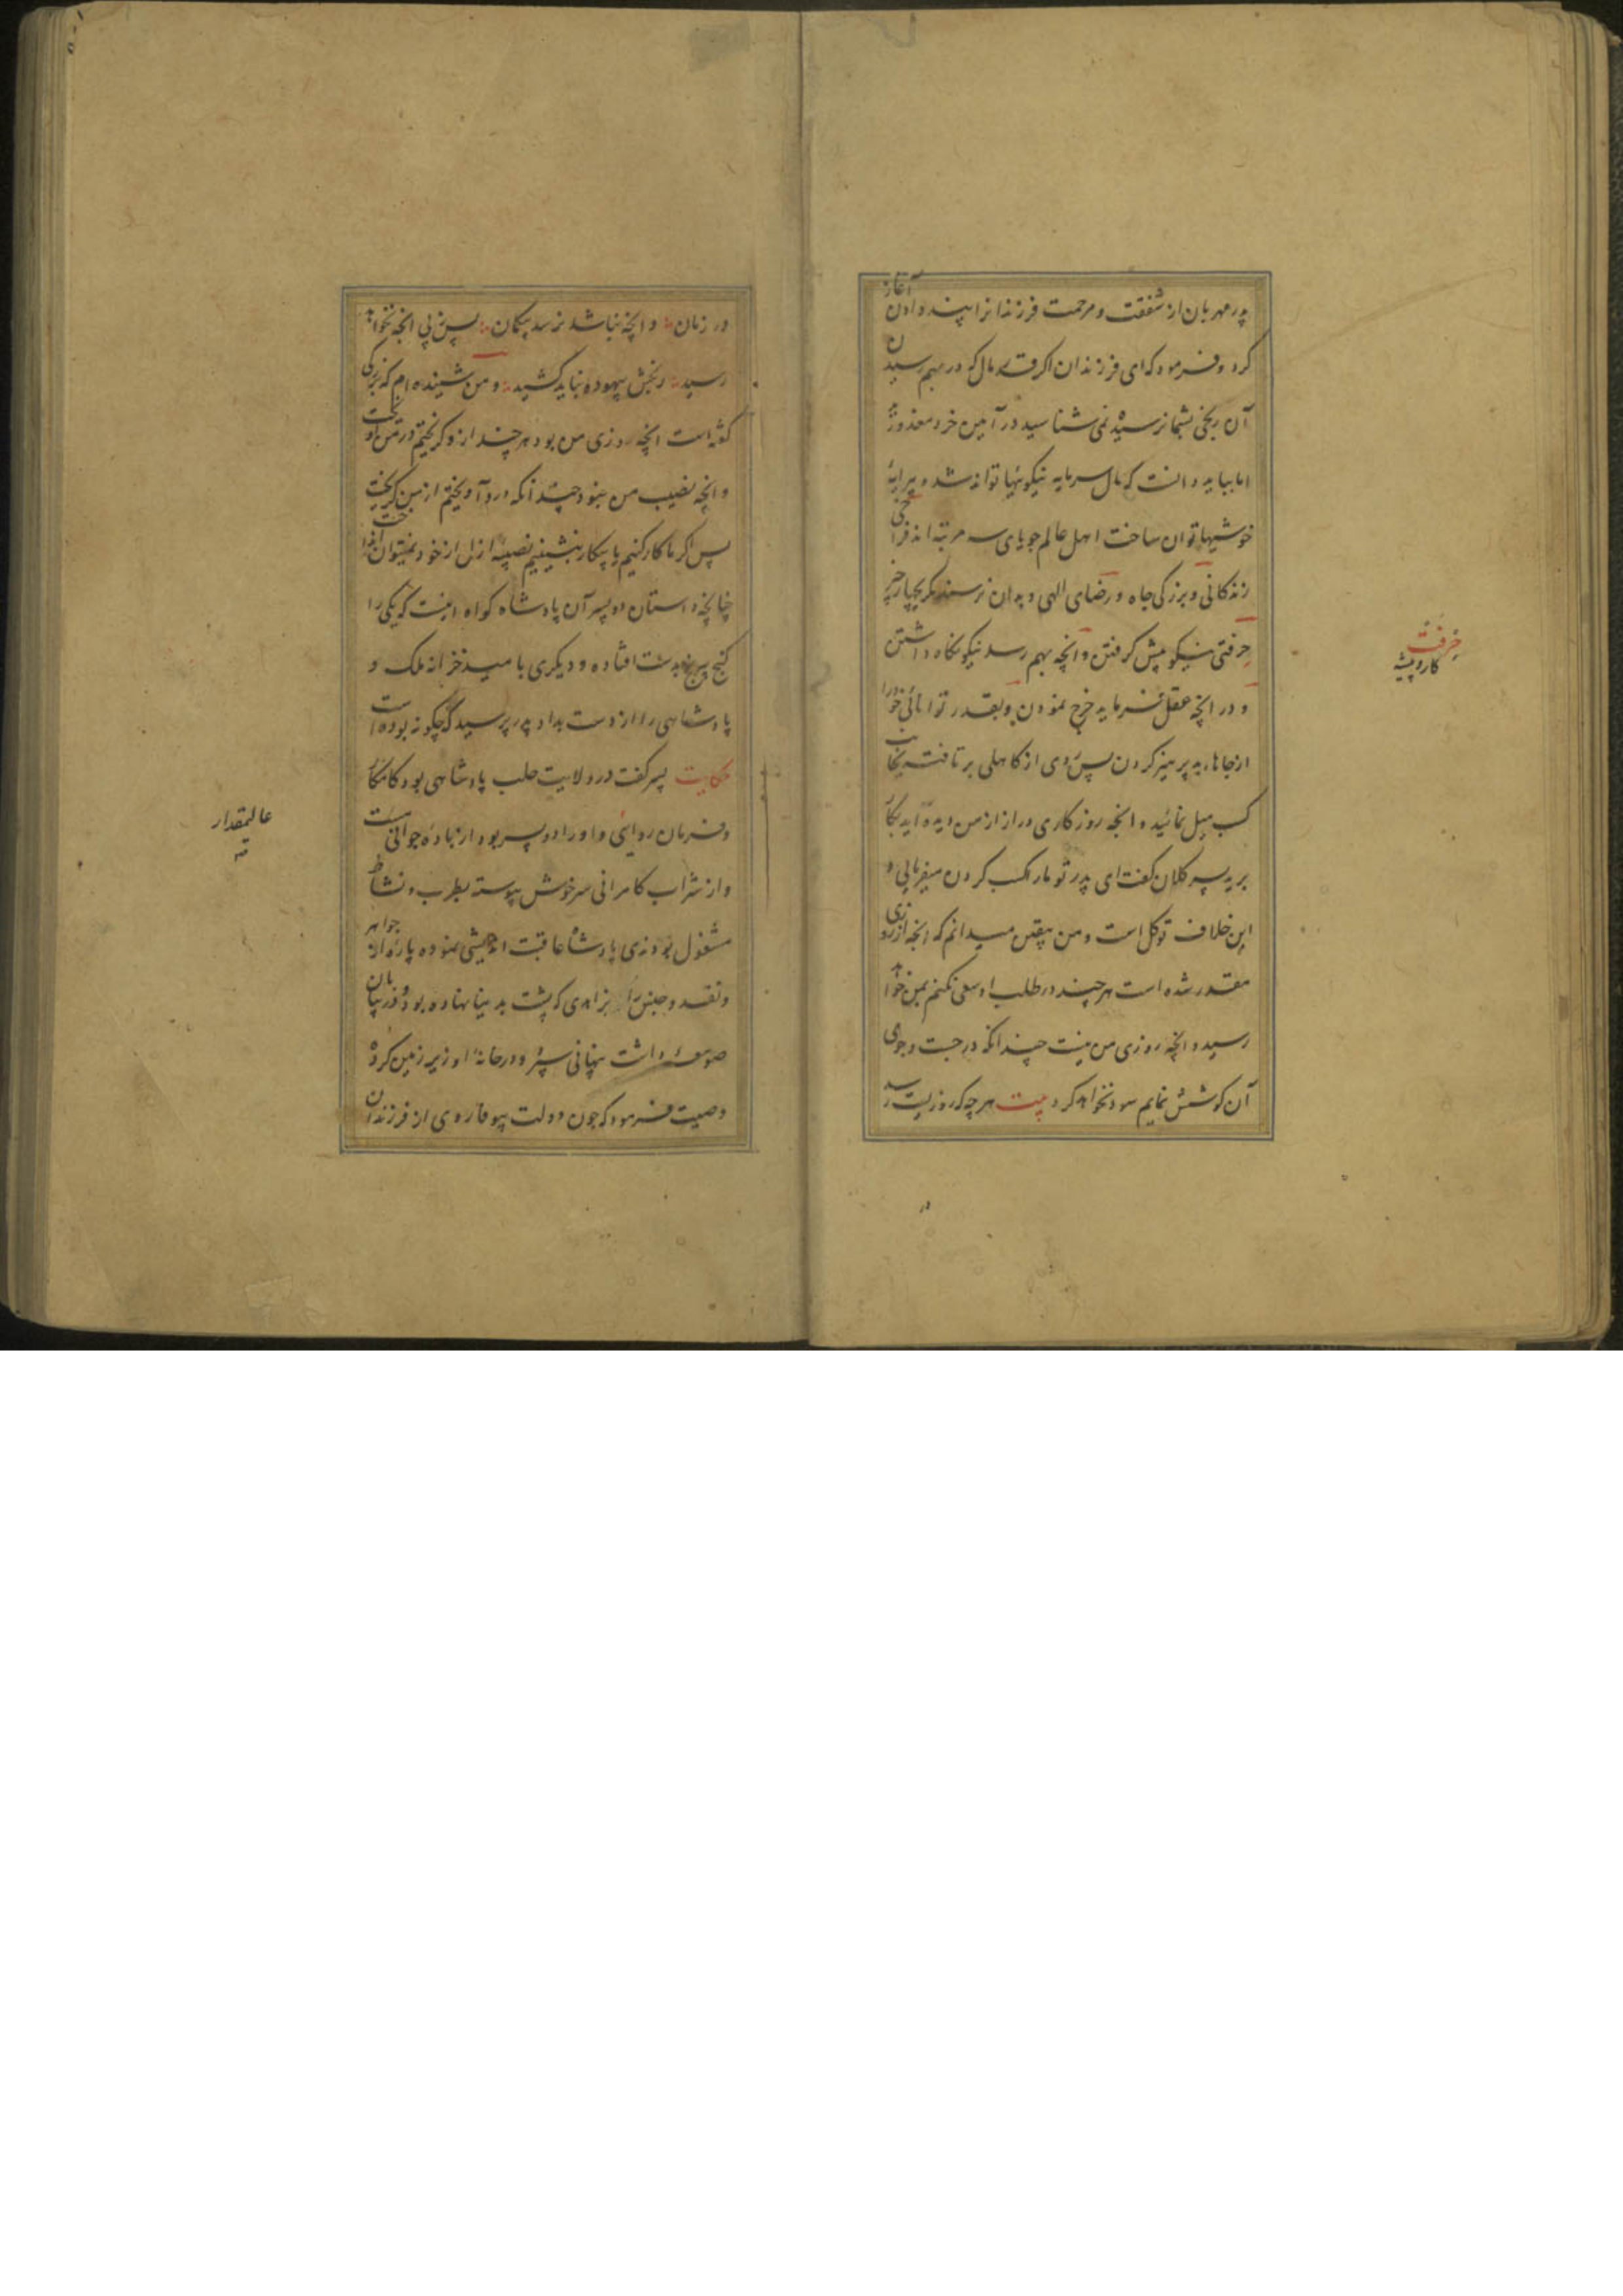 پدر مهربان از شفقت و مرحمت فرزندانرا پند دادن آغاز
کرد و فرمود که ای فرزندان اکر قدر مال که در بهم رسیدن
آن رنجی بشما نرسیده نمی شناسید در آیین خرد معذورید
اما بباید دانست که مال سرمایه نیکوئیها تواند شد و پیرایه
خوشیها توان ساخت اهل عالم جویای سه مرتبه اند فراخی
زندکانی و بزرکی جاه و رضای الهی و بدان نرسند مکر بچهار چیز
حرفتی نیکو پیش کرفتن و آنچه بهم رسد نیکو نکاه داشتن
و در انچه عقل فرماید خرج نمودن و بقدر توانائی خود را
از جاهای بد پرهیز کردن پس روی از کاهلی بر تافته بجانب
کسب میل نمائید و انچه روزکاری دراز از من دیده اید بکار
برید پسر کلان کفت ای پدر تو ما را کسب کردن میفرمایی و
این خلاف توکل است و من بیقین میدانم که انچه از روزی
مقدر شده است هر چند در طلب او سعی نکنم بمن خواهد
رسید و انچه روزی من نیست چندانکه در جست و جوی
آن کوشش نمایم سود نخواهد کرد بیت هر چه که روزیست رسد
در
حرفت
کار و پیشه
در زمان و انچه نباشد نرسد بیکمان پس پی انچه نخواهد
رسید رنجش بیهوده نباید کشید و من شنیده ام که بزرکی
کفته است انچه روزی من بود هر چند ازو کریختم در من آویخت
و انچه نصیب من نبود چندانکه درو آویختم از من کریخت
پس اکر ما کار کنیم یا بیکار بنشینیم نصیبه ازل از خود نمیتوان انداخت
چنانچه داستان دو پسر آن پادشاه کواه اینست که یکی را
کنج بیرنج بدست افتاده و دیکری با مید خزانه ملک و
پادشاهی را از دست بداد پدر پرسید که چکونه بوده است
حکایت پسر کفت در ولایت حلب پادشاهی بود کامکار
و فرمان روایی و او را دو پسر بود از باده جوانی مست
و از شراب کامرانی سر خوش پیوسته بطرب و نشاط
مشغول بودندی پادشاه عاقبت اندیشی نموده پاره از جواهر
و نقد و جنس را بزاهدی که پشت بدنیا نهاده بود و در بیابان
صومعه داشت پنهانی سپرد و در خانه او زیر زمین کرده
وصیت فرمود که چون دولت بیوفا روی از فرزندان
عالیمقدار